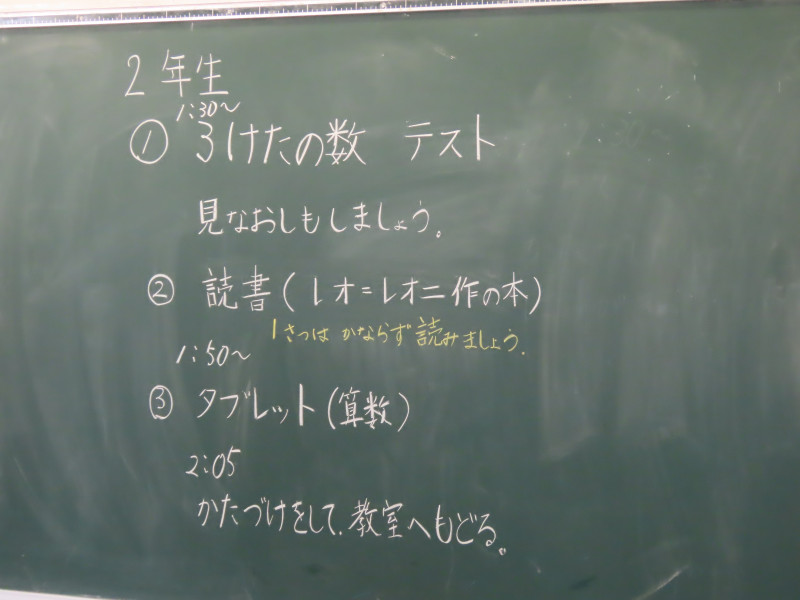 2年生
1:30〜
① 3けたの数 テスト
見なおしもしましょう。
② 読書(レオ=レオニ作の本)
1さつは かならず読みましょう。
1:50〜
③ タブレット(算数)
2:05
かたづけをして、教室へもどる。